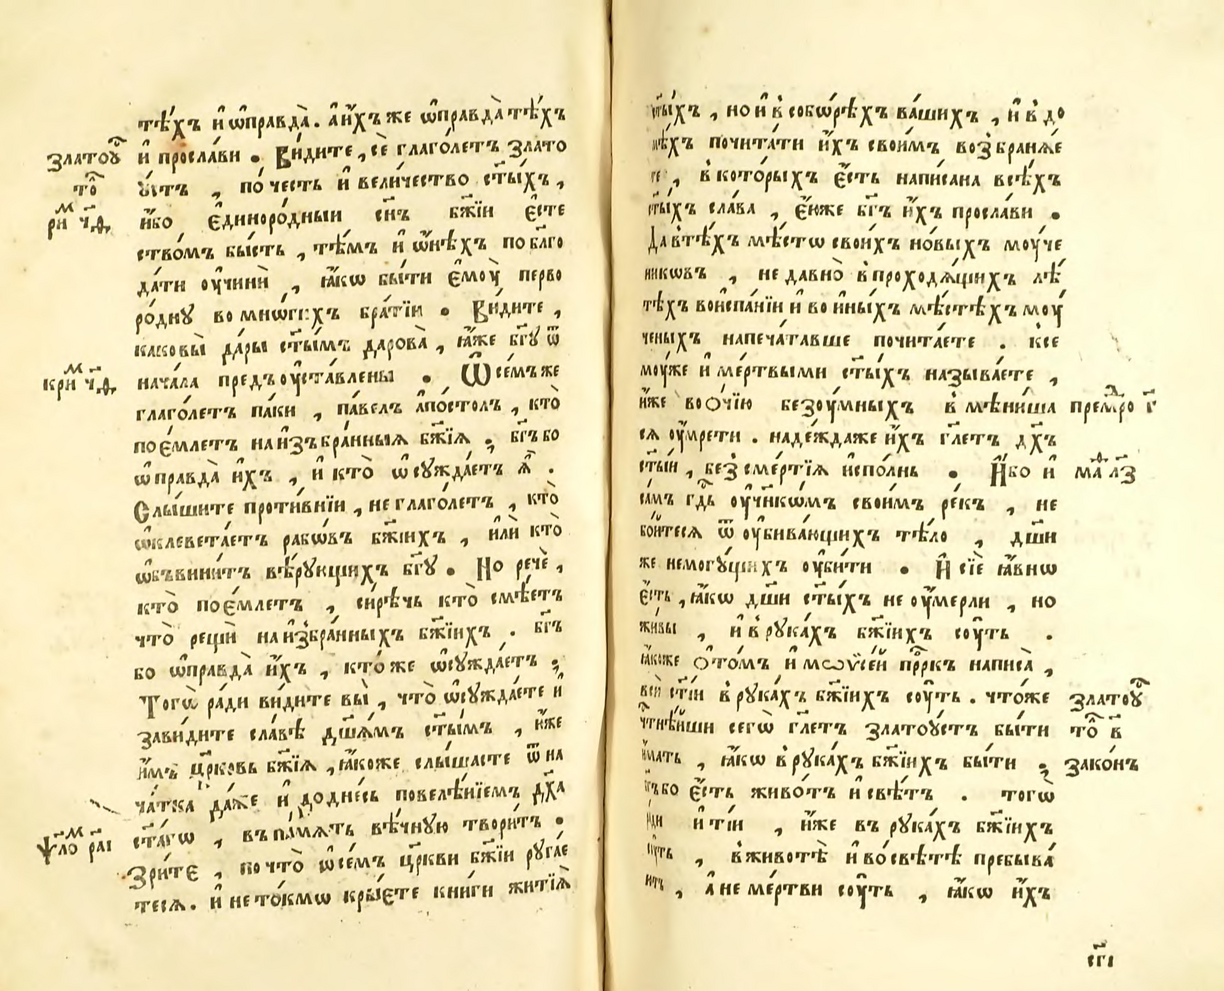 тѣ́хъ и҆ ѡ҆правда̀. а҆ и҆́хъ же ѡ҆правда̀ тѣ́хъ
златоꙋ҆
и҆ просла́ви. Ви́дите, сѐ глаго́летъ злато
то
ꙋ҆́стъ, по́ честь и҆ вели́чество ст҃ы́хъ,
ри҄м ч҃д
и҆́бо є҆диноро́дныи сн҃ъ бж҃їи є҆сте
ство́мъ бы́сть, тѣ́мъ и҆ ѡ҆нѣ́хъ по бл҃го
да́ти оу҆чинѝ, ꙗ҆́кѡ бы́ти є҆моу̀ перво
ро́днꙋ во мно́гихъ бра́тїи. Ви́дите,
каковы̀ да́ры ст҃ы́мъ дарова̀, ꙗ҆́же бг҃ꙋ ѿ
кри҄м ч҃д
нача́ла предъоу҆ста́влены. Ѿ се́мъ же
глаго́летъ па́ки, па́велъ а҆по́столъ, кто̀
пое́млетъ на и҆з̾бра́нныѧ бж҃їѧ, бг҃ъ бо
ѡ҆правда̀ и҆́хъ, и҆ кто̀ ѡ҆сꙋжда́етъ ѧ҆̀.
Слы́шите проти́внїи, не глаго́летъ, кто̀
ѡ҆клевета́етъ рабѡ́въ бж҃їихъ, и҆лѝ кто̀
ѡ҆б̾вини́тъ вѣ́рꙋющихъ бг҃ꙋ. Но речѐ,
кто̀ пое́млетъ, си́рѣчь кто̀ смѣ́етъ
что̀ рещѝ на и҆збра́нныхъ бж҃їихъ. бг҃ъ
бо ѡ҆правда̀ и҆́хъ, кто́ же ѡ҆сꙋжда́етъ,
Тогѡ̀ ра́ди ви́дите вы̀, что̀ ѡ҆сꙋжда́ете и҆
зави́дите сла́вѣ дш҃а́мъ ст҃ы́мъ, и҆́же
и҆́мъ цр҃ковь бж҃їѧ, ꙗ҆́коже слы́шасте ѿ на
ча́тка да́же и҆ до дне́сь повелѣ́нїемъ дх҃а
ст҃а́гѡ, въ па́мѧть вѣ́чнꙋю твори́тъ.
ѱ҄мло р҃аі
Зри́те, по что̀ ѡ҆ се́мъ цр҃кви бж҃їи рꙋга́е
тесѧ. и҆ не то́кмѡ кры́ете кни́ги житїѧ̀
ст҃ы́хъ, но и҆ в̾ собѡ́рѣхъ ва́шихъ, и҆ в̾ до
мѣ́хъ почита́ти и҆́хъ свои́мъ воз̾бранѧ́е
те, в̾ кото́рыхъ є҆́сть написана всѣ́хъ
ст҃ы́хъ сла́ва, є҆́юже бг҃ъ и҆́хъ просла́ви.
Да в̾ тѣ́хъ мѣ́стѡ свои́хъ но́выхъ моу́че
никѡвъ, не давно̀ в̾ проходѧ́щихъ лѣ́
тѣхъ во и҆спа́нїи и҆ во и҆ны́хъ мѣ́стѣхъ моу́
ченыхъ напеча́тавше почита́ете. ксе
моу́же и҆ ме́ртвыми ст҃ы́хъ называ́ете,
и҆́же во ѻ҆́чїю безоу́мныхъ в̾мѣни́ша
прем҃дро г҃
сѧ оу҆мре́ти. наде́жда же и҆́хъ гл҃етъ дх҃ъ
ст҃ы́и, без̾сме́ртїѧ и҆спо́лнь. И҆́бо и҆
маѳ л҃з
са́мъ гд҃ь оу҆ч҃нкѡ́мъ свои́мъ ре́къ, не
бо́йтесѧ ѿ оу҆бива́ющихъ тѣ́ло, дш҃и
же немогꙋ́щихъ оу҆би́ти. И҆ сїѐ ꙗ҆́внѡ
є҆́сть, ꙗ҆́кѡ дш҃и ст҃ы́хъ не оу҆́мерли, но
жи́вы, и҆ в̾ рꙋка́хъ бж҃їихъ соу́ть.
ꙗ҆́коже ѻ҆ то́мъ и҆ мѡѷсе́й прⷪ҇ркъ написа̀,
всѝ ст҃їи в̾ рꙋка́хъ бж҃їихъ соу́ть. что́же
златоꙋ҆
чтнѣ́йши сегѡ̀ гл҃етъ златоꙋ́стъ бы́ти
то в҃
и҆́мать, ꙗ҆́кѡ в̾ рꙋка́хъ бж҃їихъ бы́ти,
зако́нъ
бг҃ъ бо є҆́сть живо́тъ и҆ свѣ́тъ. тогѡ̀
ра́ди и҆ ті́и, и҆́же въ рꙋка́хъ бж҃їихъ
соу́ть, в̾ животѣ̀ и҆ во свѣ́тѣ пребыва́
ютъ, а҆ не ме́ртви соу́ть, ꙗ҆́кѡ и҆́хъ
сг҃і